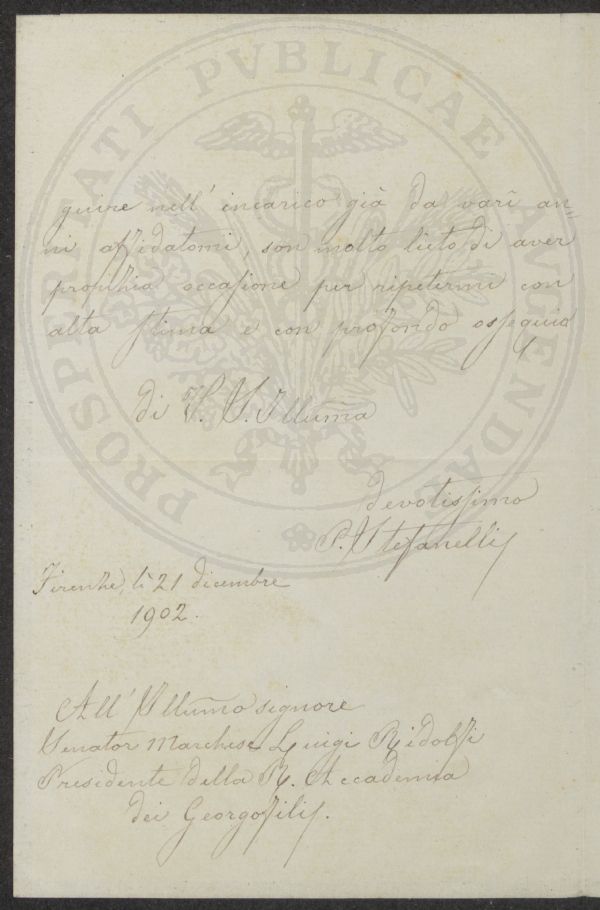 PROSPERITATI PVBLICAE AVGENDAE
guire nell' incarico già da varî an=
ni affidatomi, son molto lieto di aver
propizia occasione per ripetermi con
alta stima e con profondo ossequio
di V. S. Illuma
devotissimo
P. Stefanelli
Firenze, lì 21 dicembre
1902.
All' Illumo signore
Senator Marchese Luigi Ridolfi
Presidente della R. Accademia
dei Georgofili.